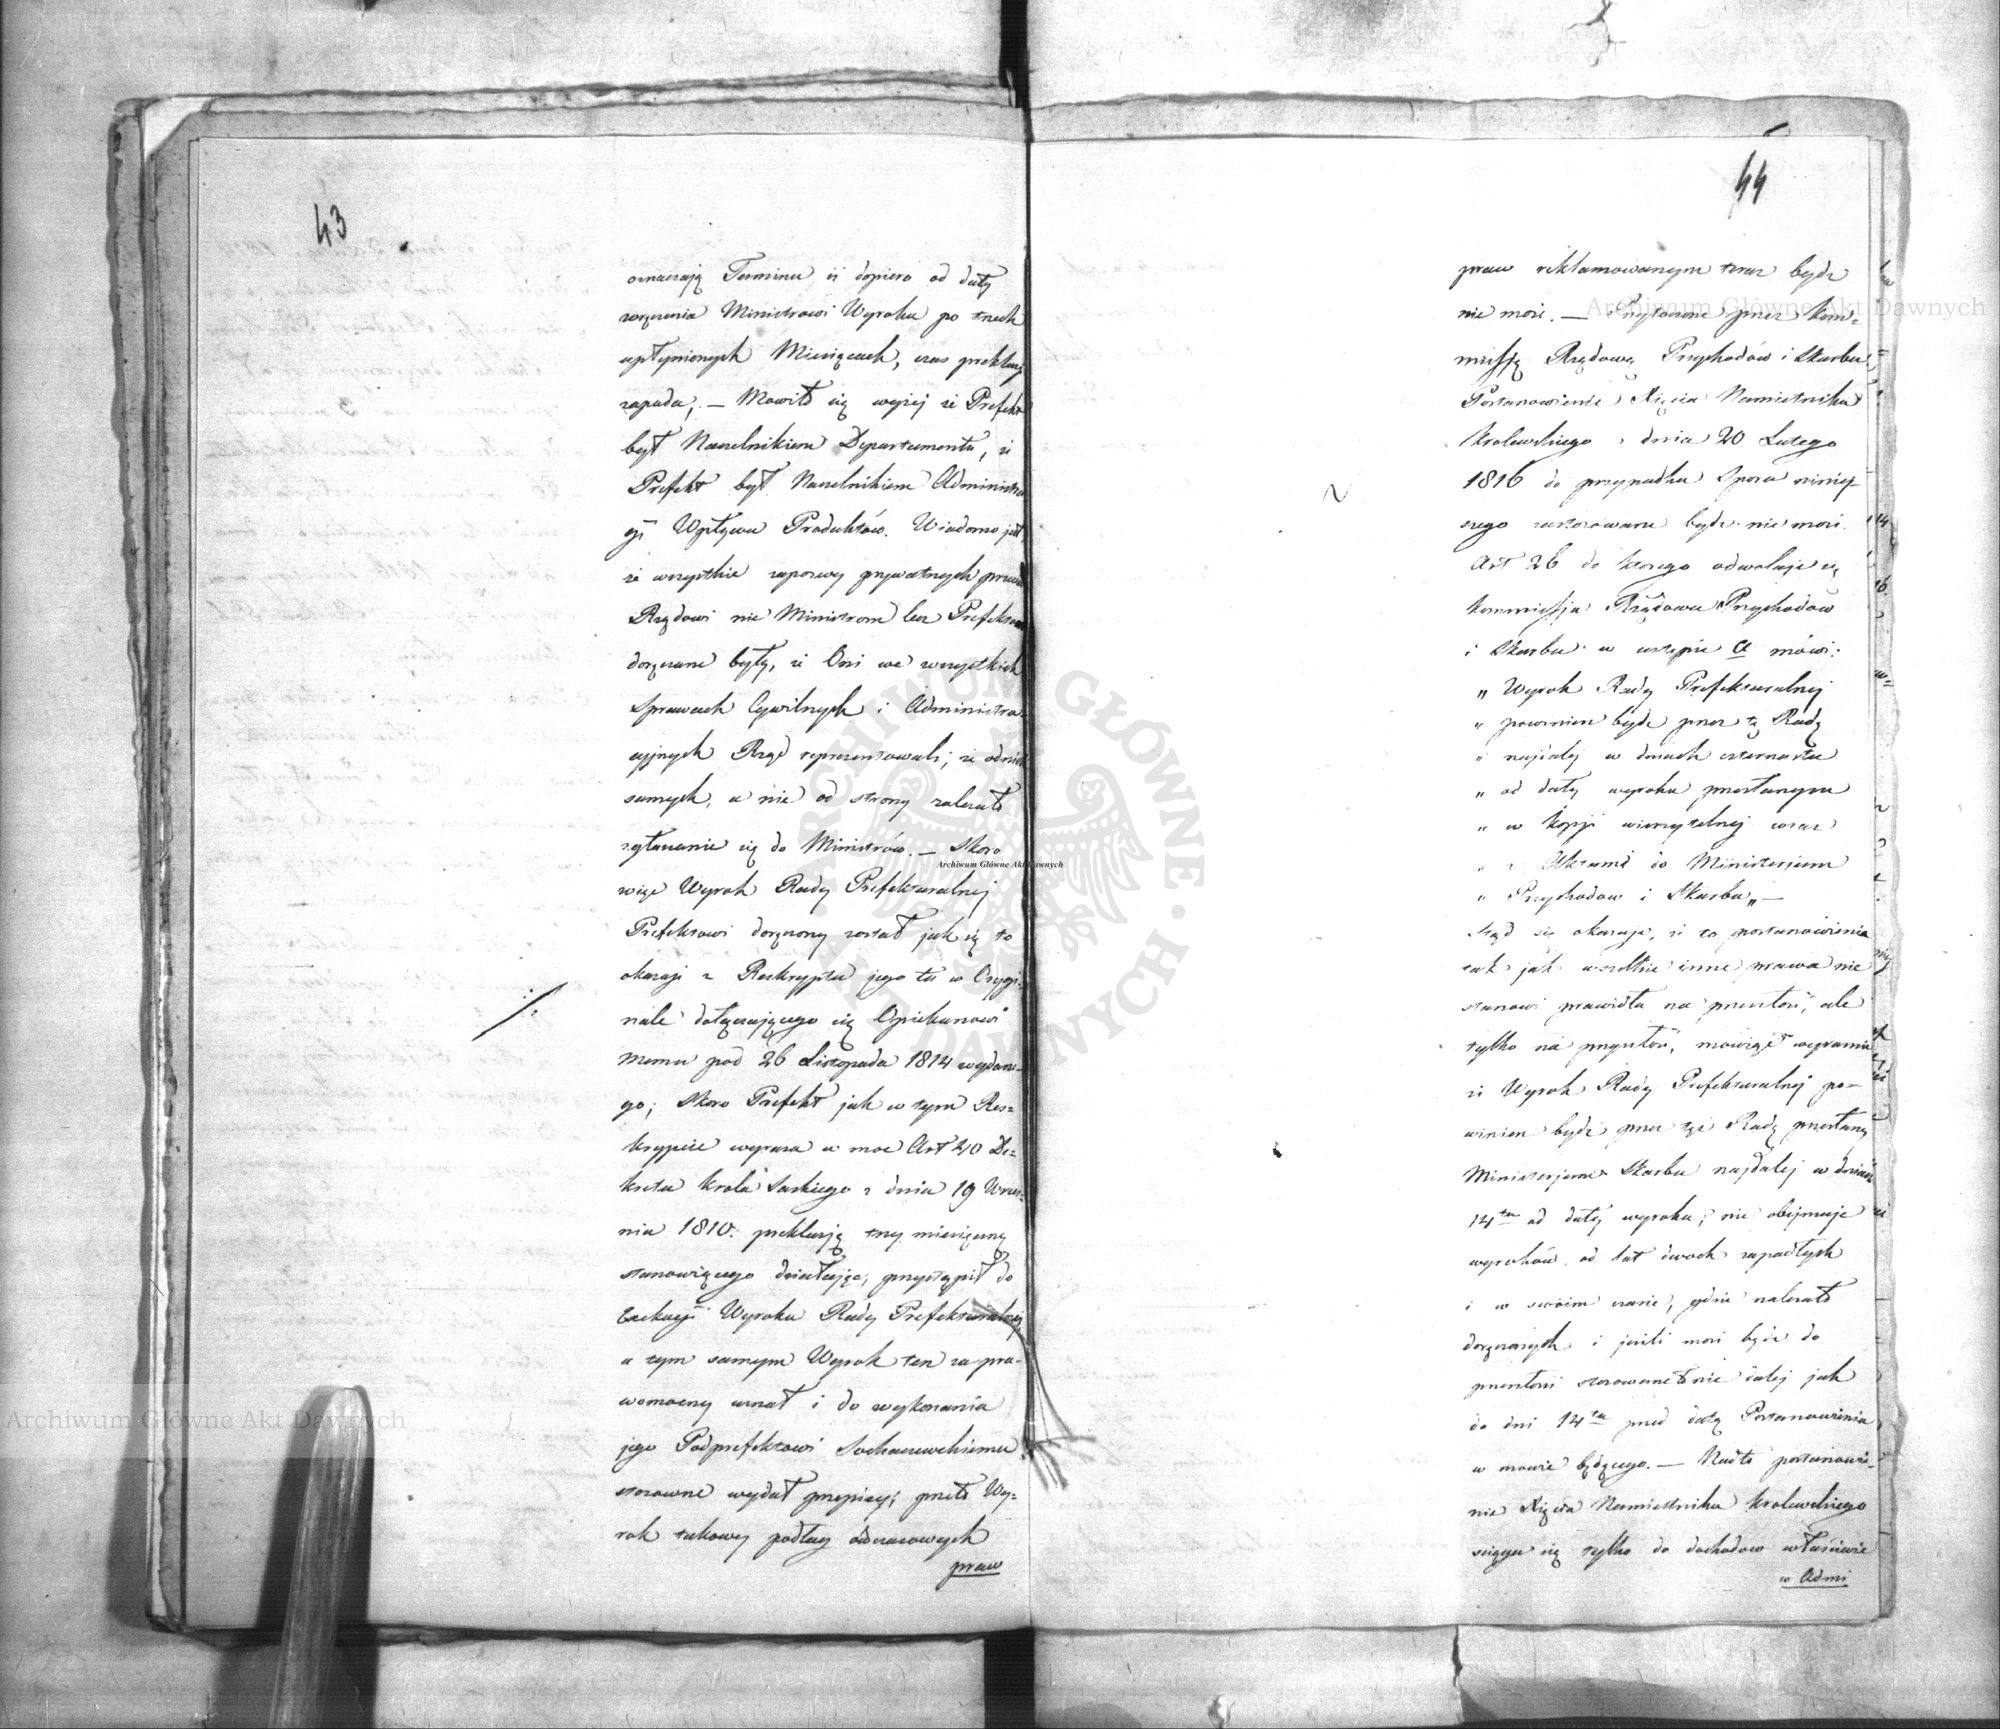 43
oznaczają Terminu iż dopiero od daty
wręczenia Ministrowi Wyroku po trzech
upłynionych Miesiącach, czas prekluzji
zapada. — Mowiło się wyżej że Prefekt
był Naczelnikiem Departamentu, że
Prefekt był Naczelnikiem Administra
cji Wpływu Produktów. Wiadomo jest
że wszystkie zapozwy prywatnych przeciw
Rządowi nie Ministrom lecz Prefektom
doręczane były, że Oni we wszystkich
Sprawach Cywilnych i Administra=
cyjnych Rząd reprezentowali; że od nich
samych, a nie od strony zależało
zgłaszanie się do Ministrów. — Skoro
więc Wyrok Rady Prefekturalnej
Prefektowi doręczony został jak się to
okazuje z Reskryptu jego tu w Orygi=
nale dołączającego się Opiekunowi
memu pod 26 Listopada 1814 wydane=
go; Skoro Prefekt jak w tym Res=
krypcie wyraża w moc Art 40 De=
kretu Krola Saskiego z dnia 19 Wrześ=
nia 1810: prekluzją trzy miesięczną
stanowiącego działając, przystąpił do
Exekucji Wyroku Rady Prefekturalnej
a tym samym Wyrok ten za pra-
womocny uznał i do wykonania
jego Podprefektowi Sochaczewskiemu
stosowne wydał przepisy; przeto Wy=
rok takowy podług ówczasowych
praw
44
praw reklamowanym teraz bydz
nie może. — Przytoczone przez Kom=
missyą Rządową Przychodów i Skarbu
Postanowienie Xięcia Namiestnika
Krolewskiego z dnia 20 Lutego
1816 do przypadku Sporu niniej-
szego zastosowane bydz nie może.
Art 26 do ktorego odwołuje się
Kommissja Rządowa Przychodów
i Skarbu w ustępie a mówi:
„ Wyrok Rady Prefekturalnej
„ powinien bydz przez tę Radę
„ najdalej w dniach czternastu
„ od daty wyroku przesłanym
„ w Kopji wierzytelnej wraz
„ z Aktami do Ministerjum
„ Przychodow i Skarbu„ —
Ztąd się okazuje, że to postanowienie
tak jak wszelkie inne prawa nie
stanowi prawidła na przeszłość, ale
tylko na przyszłość, mówiąc wyraznie
że Wyrok Rady Prefekturalnej po-
winien bydź przez tęż Radę przesłany
Ministerjum Skarbu najdalej w dniach
14tu od daty wyroku; nie obejmuje
wyroków od lat dwoch zapadłych
i w swoim czasie, gdzie należało
doręczonych i jeżeli może bydz do
przeszłości stosowane to nie dalej jak
do dni 14tu przed datą Postanowienia
w mowie będącego. — Nadto postanowie=
nie Xięcia Namiestnika Krolewskiego
sciąga się tylko do dochodow właściwie
w Admi
Archiwum Główne Akt Dawnych
Archiwum Główne Akt Dawnych
Archiwum Główne Akt Dawnych
ARCHIWUM GŁÓWNE AKT DAWNYCH